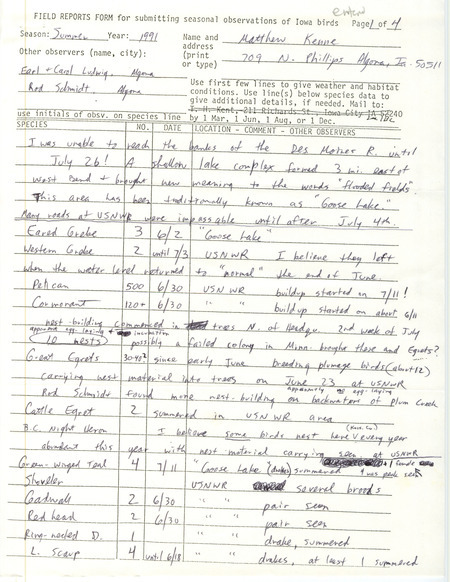 enter
FIELD REPORTS FORM for submitting seasonal observations of Iowa birds Page 1 of 4
Season: Summer Year: 1991 Name and Matthew Kenne
Other observers (name, city): address
(print 709 N. Phillips Algona, Ia. 50511
or type)
Earl + Carol Ludwig, Algona
Rod Schmidt Algona
Use first few lines to give weather and habitat
conditions. Use line(s) below species data to
give additional details, if needed. Mail to:
T. H. Kent, 211 Richards St., Iowa City IA 52240
by 1 Mar, 1 Jun, 1 Aug, or 1 Dec.
use initials of obsv. on species line
SPECIES NO. DATE LOCATION - COMMENT - OTHER OBSERVERS
I was unable to reach the banks of the Des Moines R. until
July 26! A shallow lake complex formed 3 mi. east of
West Bend + brought new meaning to the words "flooded fields".
This area has been traditionally known as "Goose Lake."
Many roads at USNWR were impassable until after July 4th.
Eared Grebe 3 6/2 "Goose Lake"
Western Grebe 2 until 7/3 USNWR I believe they left
when the water level returned to "normal" the end of June
Pelican 500 6/30 USNWR buildup started on 7/11!
Cormorant 120+ 6/30 " " buildup started on about 6/11
nest-building commenced in trees N. of Headqu. 2nd week of July
apparent egg-laying + incubation
(10 nests) possibly a failed colony in Minn. brought these and Egrets?
Great Egrets 30-40? since early June breeding plumage birds (about 12)
carrying nest material into trees on June 23 at USNWR
apparently no egg-laying
Rod Schmidt found more nest-building on backwaters of Plum Creek
Cattle Egret 2 summered in USNWR area
(Koss. Co.)
B.C. Night Heron I believe some birds nest here every year
abundant this year with nest material carrying seen at USNWR
Green-winged Teal 4 7/11 "Goose Lake (drakes) summered + 1 female was seen
Shoveler USNWR several broods
Gadwall 2 6/30 " " pair seen
Redhead 2 6/30 " " pair seen
Ring-necked D. 1 " " drake, summered
L. Scaup 4 until 6/18 " " drakes, at least 1 summered